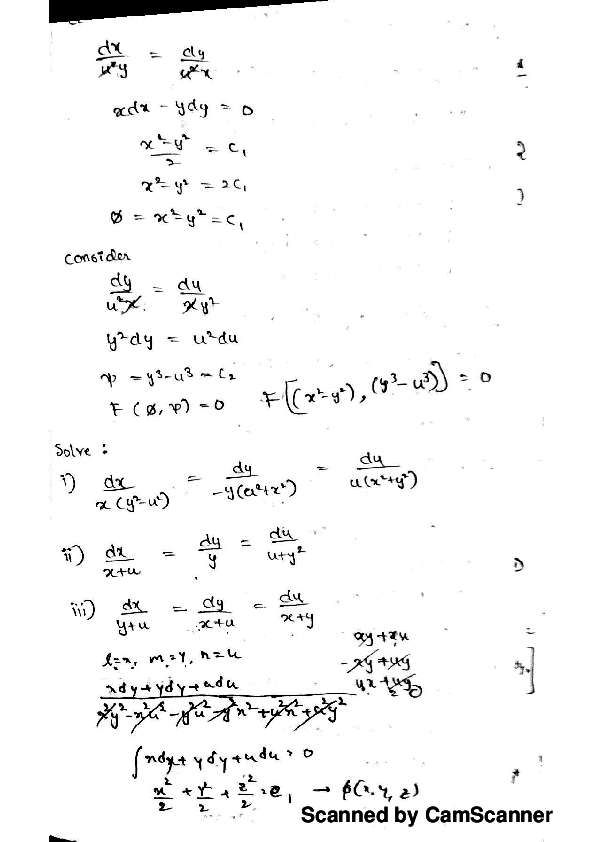 dx/u²y = dy/u²x
xdx - ydy = 0
x²-y²/2 = C₁
x²-y² = 2C₁
Ø = x²-y² = C₁
consider
dy/u²x = du/xy²
y²dy = u²du
ψ = y³-u³ = C₂
F (Ø, ψ) = 0 F[(x²-y²), (y³-u³)] = 0
Solve :
i) dx/x(y²-u²) = dy/-y(u²+x²) = du/u(x²+y²)
ii) dx/x+u = dy/y = du/u+y²
iii) dx/y+u = dy/x+u = du/x+y
xy+xu
l=x, m=y, n=u -xy+uy
xdy+ydy+udu
x²y²-x²u²-y²u²-y²x²+u²x²+u²y²
∫xdx+ydy+udu=0
x²/2 + y²/2 + z²/2 = c₁ → φ(x,y,z)
Scanned by CamScanner